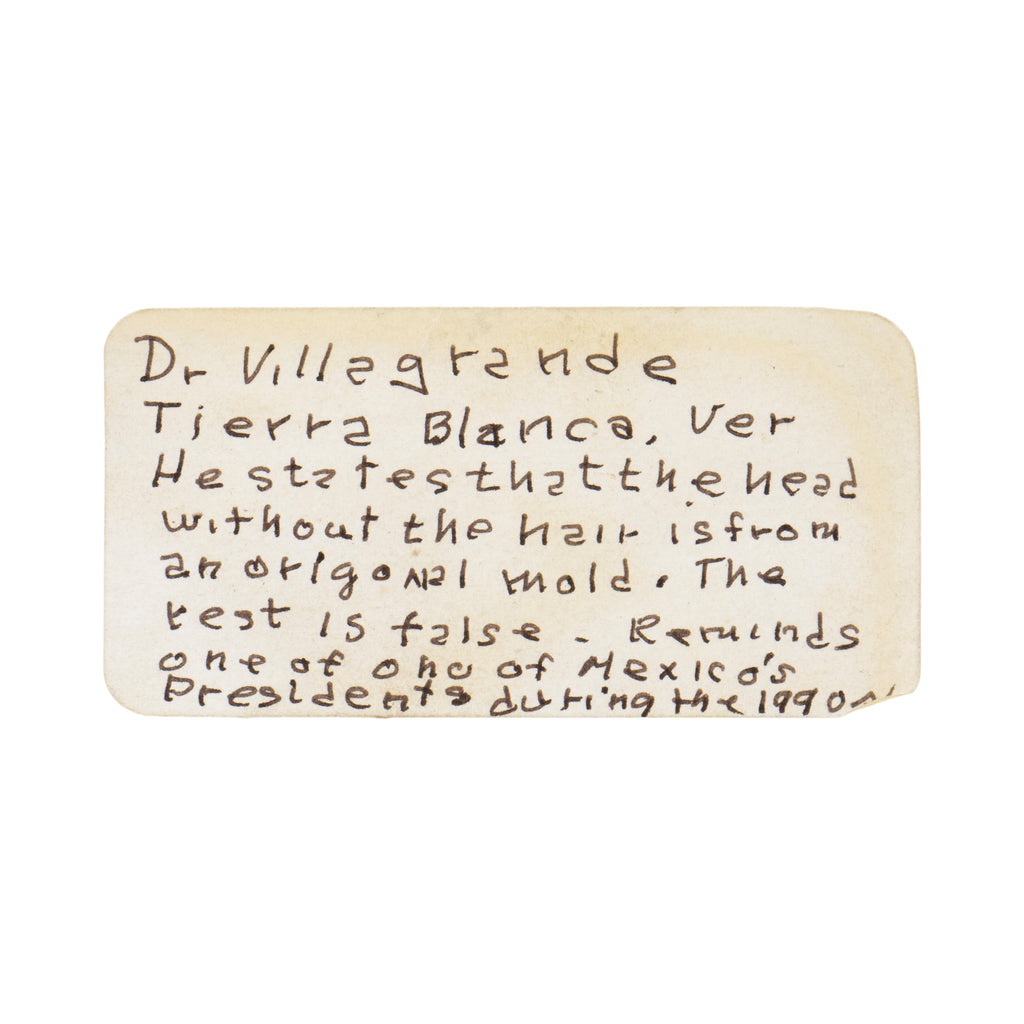 Dr Villagrande
Tierra Blanca, Ver
He states that the head
without the hair is from
an origonal mold. The
rest is false. Reminds
one of one of Mexico's
Presidents during the 1990